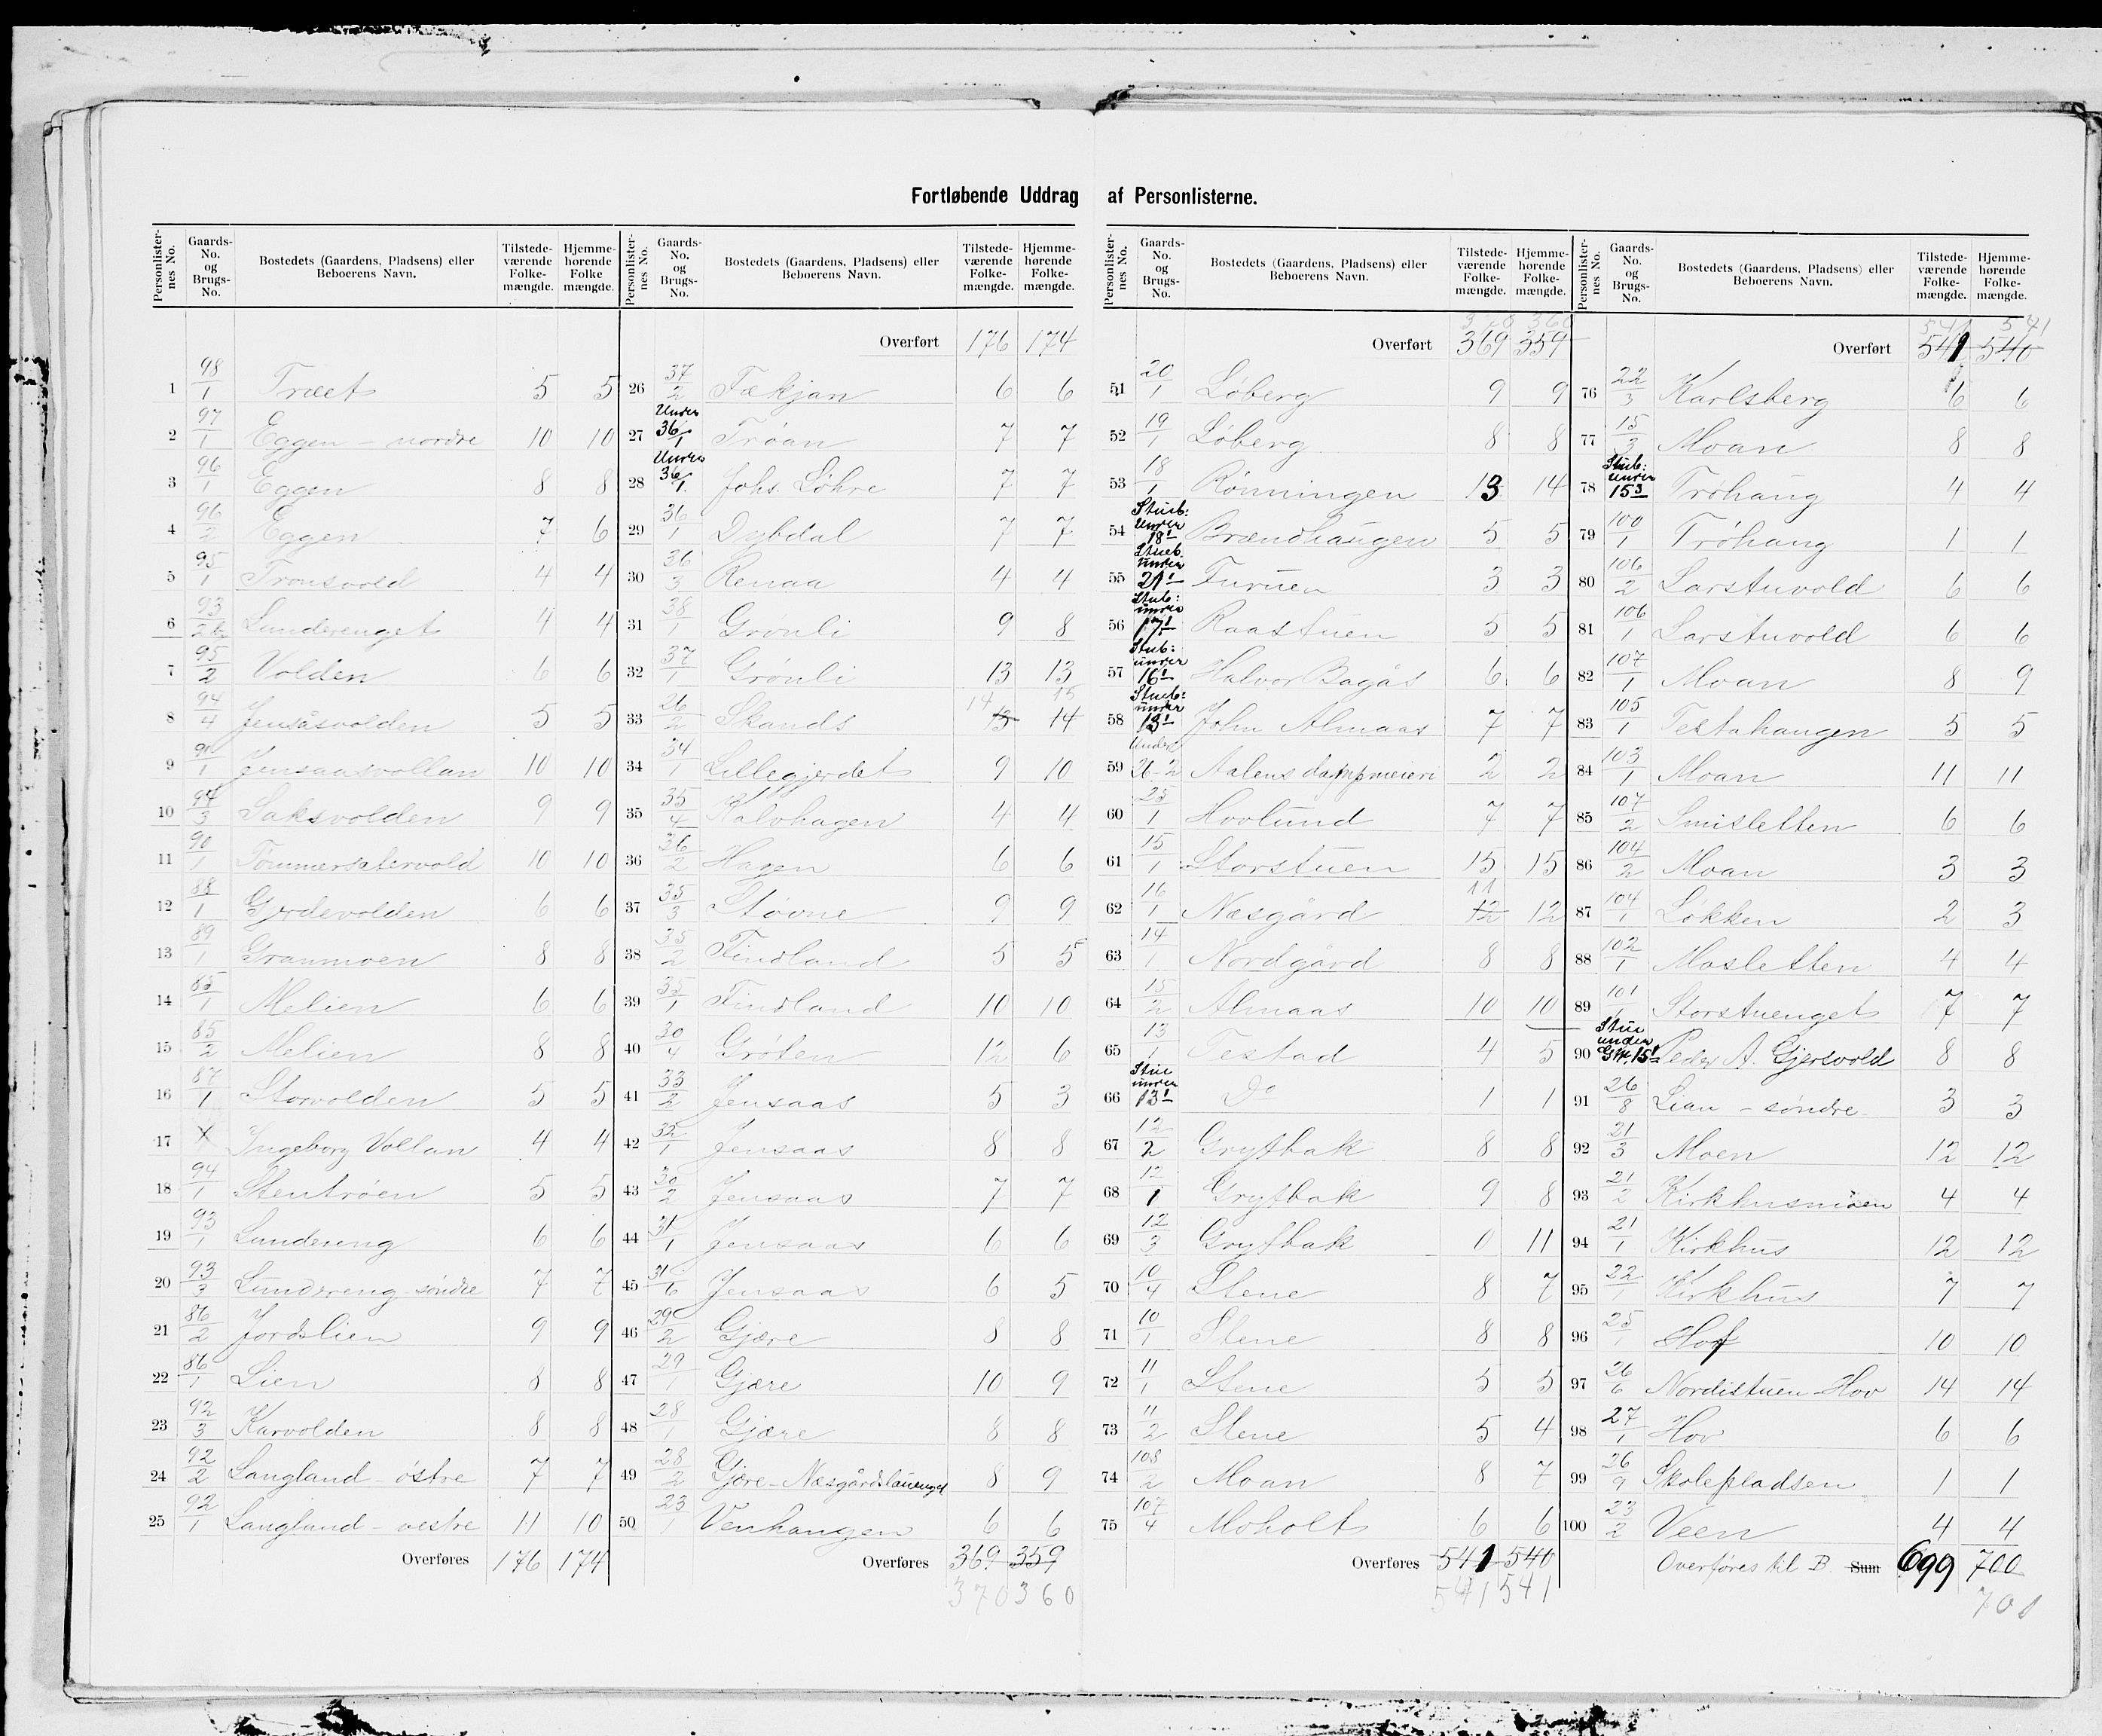 Fortløbende Uddrag af Personlisterne.
Personlisternes No. Gaards-No. og Brugs-No. Bostedets (Gaardens, Pladsens) eller Beboerens Navn. Tilstedeværende Folkemængde. Hjemmehørende Folkemængde.
1 98/1 Træet 5 5
2 97/1 Eggen - nordre 10 10
3 96/1 Eggen 8 8
4 96/2 Eggen 7 6
5 95/1 Tronsvold 4 4
6 93/2b Lunderenget 4 4
7 95/2 Volden 6 6
8 94/4 Jensåsvolden 5 5
9 91/1 Jensaasvollan 10 10
10 94/3 Saksvolden 9 9
11 90/1 Tømmersætervold 10 10
12 88/1 Gjerdevolden 6 6
13 89/1 Granmoen 8 8
14 85/1 Melien 6 6
15 85/2 Melien 8 8
16 87/1 Storvolden 5 5
17 X Ingeborg Vollan 4 4
18 94/1 Stentrøen 5 5
19 93/1 Lundereng 6 6
20 93/3 Lundereng - søndre 7 7
21 86/2 Jordslien 9 9
22 86/1 Lien 8 8
23 92/3 Karvolden 8 8
24 92/2 Langland - østre 7 7
25 92/1 Langland - vestre 11 10
Overføres 176 174
Personlisternes No. Gaards-No. og Brugs-No. Bostedets (Gaardens, Pladsens) eller Beboerens Navn. Tilstedeværende Folkemængde. Hjemmehørende Folkemængde.
Overført 176 174
26 37/2 Fækjan 6 6
27 Under 36/1 Trøan 7 7
28 Under 36/1 Johs. Løhre 7 7
29 36/1 Dybdal 7 7
30 36/3 Renaa 4 4
31 38/1 Grønli 9 8
32 37/1 Grønli 13 13
33 26/2 Skands 14 13 15 14
34 34/1 Lillegjerdet 9 10
35 35/4 Kalvhagen 4 4
36 36/2 Hagen 6 6
37 35/3 Støvne 9 9
38 35/2 Findland 5 5
39 35/1 Findland 10 10
40 30/4 Grøten 12 6
41 33/2 Jensaas 5 3
42 32/1 Jensaas 8 8
43 30/2 Jensaas 7 7
44 31/1 Jensaas 6 6
45 31/6 Jensaas 6 5
46 29/2 Gjære 8 8
47 29/1 Gjære 10 9
48 28/1 Gjære 8 8
49 28/2 Gjære - Næsgårdslauenget 8 9
50 23/1 Venhaugen 6 6
Overføres 369 359
370 360
Personlisternes No. Gaards-No. og Brugs-No. Bostedets (Gaardens, Pladsens) eller Beboerens Navn. Tilstedeværende Folkemængde. Hjemmehørende Folkemængde.
370 360
Overført 369 359
51 20/1 Løberg 9 9
52 19/1 Løberg 8 8
53 18/1 Rønningen 13 14
54 Stueb: under 18/1 Brændhaugen 5 5
55 Stueb. under 21/1 Furuen 3 3
56 Stub: under 17/1 Raastuen 5 5
57 Stub: under 16/1 Halvor Bagås 6 6
58 Stueb: under 13/1 John Almaas 7 7
59 Under 26-2 Aalens dampmeieri 2 2
60 25/1 Hovlund 7 7
61 15/1 Storstuen 15 15
62 16/1 Næsgård 11 12 12
63 14/1 Nordgård 8 8
64 15/2 Almaas 10 10
65 13/1 Testad 4 5
66 Stue under 13/1 Do 1 1
67 12/2 Grytbak 8 8
68 12/1 Grytbak 9 8
69 12/3 Grytbak 0 11
70 10/4 Stene 8 7
71 10/1 Stene 8 8
72 11/1 Stene 5 5
73 11/2 Stene 5 4
74 108/2 Moan 8 7
75 107/4 Moholt 6 6
Overføres 541 540
541 541
Personlisternes No. Gaards-No. og Brugs-No. Bostedets (Gaardens, Pladsens) eller Beboerens Navn. Tilstedeværende Folkemængde. Hjemmehørende Folkemængde.
541 541
Overført 541 540
76 22/3 Karlsberg 6 6
77 15/3 Moan 8 8
78 Stub: under 15/3 Trøhaug 4 4
79 100/1 Trøhaug 1 1
80 106/2 Larstuvold 6 6
81 106/1 Larstuvold 6 6
82 107/1 Moan 8 9
83 105/1 Testahaugen 5 5
84 103/1 Moan 11 11
85 107/2 Smisletten 6 6
86 104/2 Moan 3 3
87 104/1 Løkken 2 3
88 102/1 Mosletten 4 4
89 101/1 Storstuenget 7 7
90 Stue under 15/1 Peder A. Gjersvold 8 8
91 26/8 Lian - søndre 3 3
92 21/3 Moen 12 12
93 21/2 Kirkhusmoen 4 4
94 21/1 Kirkhus 12 12
95 22/1 Kirkhus 7 7
96 25/1 Hof 10 10
97 26/6 Nordistuen Hov 14 14
98 27/1 Hov 6 6
99 26/9 Skolepladsen 1 1
100 23/2 Veen 4 4
Overføres til B Sum 699 700
701